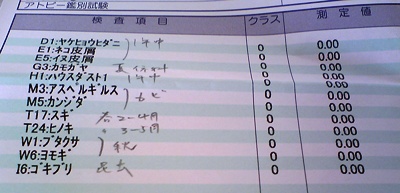 アトピー鑑別試験
検査項目 クラス 測定値
D1:ヤケヒョウヒダニ 0 0.00
E1:ネコ皮屑 1年中 0 0.00
E5:イヌ皮屑 0 0.00
G3:カモガヤ 0 0.00
H1:ハウスダスト1 1年中 0 0.00
M3:アスペルギルス カビ 0 0.00
M5:カンジダ 0 0.00
T17:スギ 春2-4月 0 0.00
T24:ヒノキ 〃3-5月 0 0.00
W1:ブタクサ 秋 0 0.00
W6:ヨモギ 0 0.00
I6:ゴキブリ 昆虫 0 0.00